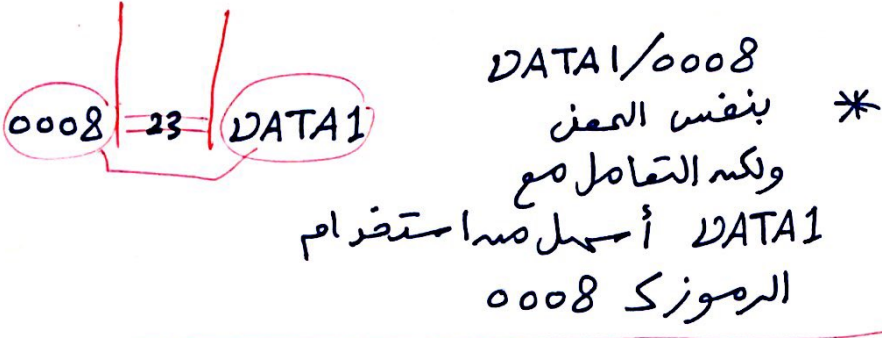 0008 23 DATA1
DATA1/0008
* بنفس المعنى
ولكن التعامل مع
DATA1 أسهل من استخدام
الرموز ك 0008